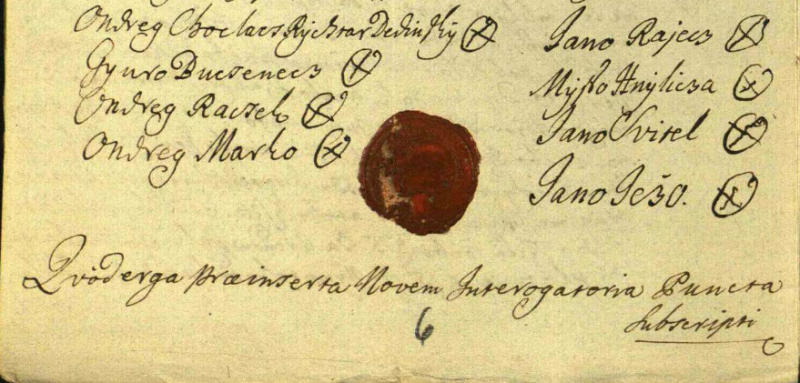 Ondreg Choclacs Rychtar Dedinsky
Gyuro Bucsenecs
Ondreg Racsek
Ondreg Marko
Jano Rajecs
Mysso Hnylicza
Jano Svitel
Jano Ježo.
Qvöderga præinserta Novem Interogatoria Puncta
Subscripti
6